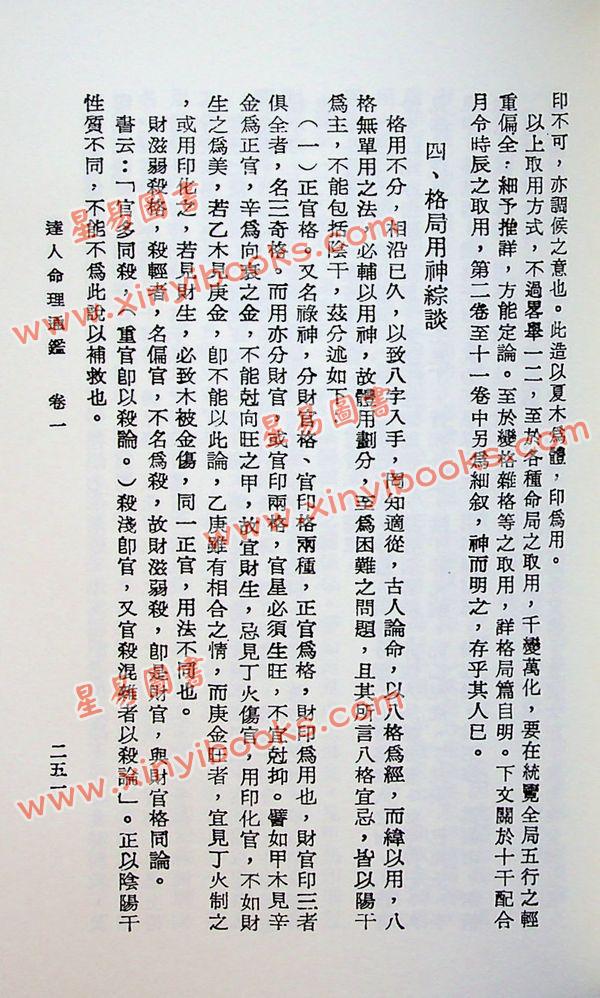 印不可，亦調候之意也。此造以夏木爲體，印爲用。
以上取用方式，不過畧舉一二，至於各種命局之取用，千變萬化，要在統覽全局五行之輕
重偏全，細予推詳，方能定論。至於變格雜格等之取用，詳格局篇自明。下文關於十干配合
月令時辰之取用，第二卷至十一卷中另爲細叙，神而明之，存乎其人巳。
四、格局用神綜談
格用不分，相沿已久，以致八字入手，罔知適從，古人論命，以八格爲經，而緯以用，八
格無單用之法，必輔以用神，故體用劃分，至爲困難之問題，且其所言八格宜忌，皆以陽干
爲主，不能包括陰干，茲分述如下：
（一）正官格。又名祿神，分財官格、官印格兩種，正官爲格，財印爲用也，財官印三者
俱全者，名三奇格。而用亦分財官，或官印兩格，官星必須生旺，不宜尅抑。譬如甲木見辛
金爲正官，辛爲向衰之金，不能尅向旺之甲，故宜財生，忌見丁火傷官，用印化官，不如財
生之爲美，若乙木見庚金，卽不能以此論，乙庚雖有相合之情，而庚金旺者，宜見丁火制之
，或用印化之，若見財生，必致木被金傷，同一正官，用法不同也。
財滋弱殺格，殺輕者，名偏官，不名爲殺，故財滋弱殺，卽是財官，與財官格同論。
書云：「官多同殺，（重官卽以殺論。）殺淺卽官，又官殺混雜者以殺論」。正以陰陽干
性質不同，不能不爲此說以補救也。
達人命理通鑑　卷一
二五一
星易圖書
www.xinyibooks.com
星易圖書
www.xinyibooks.com
星易圖書
www.xinyibooks.com